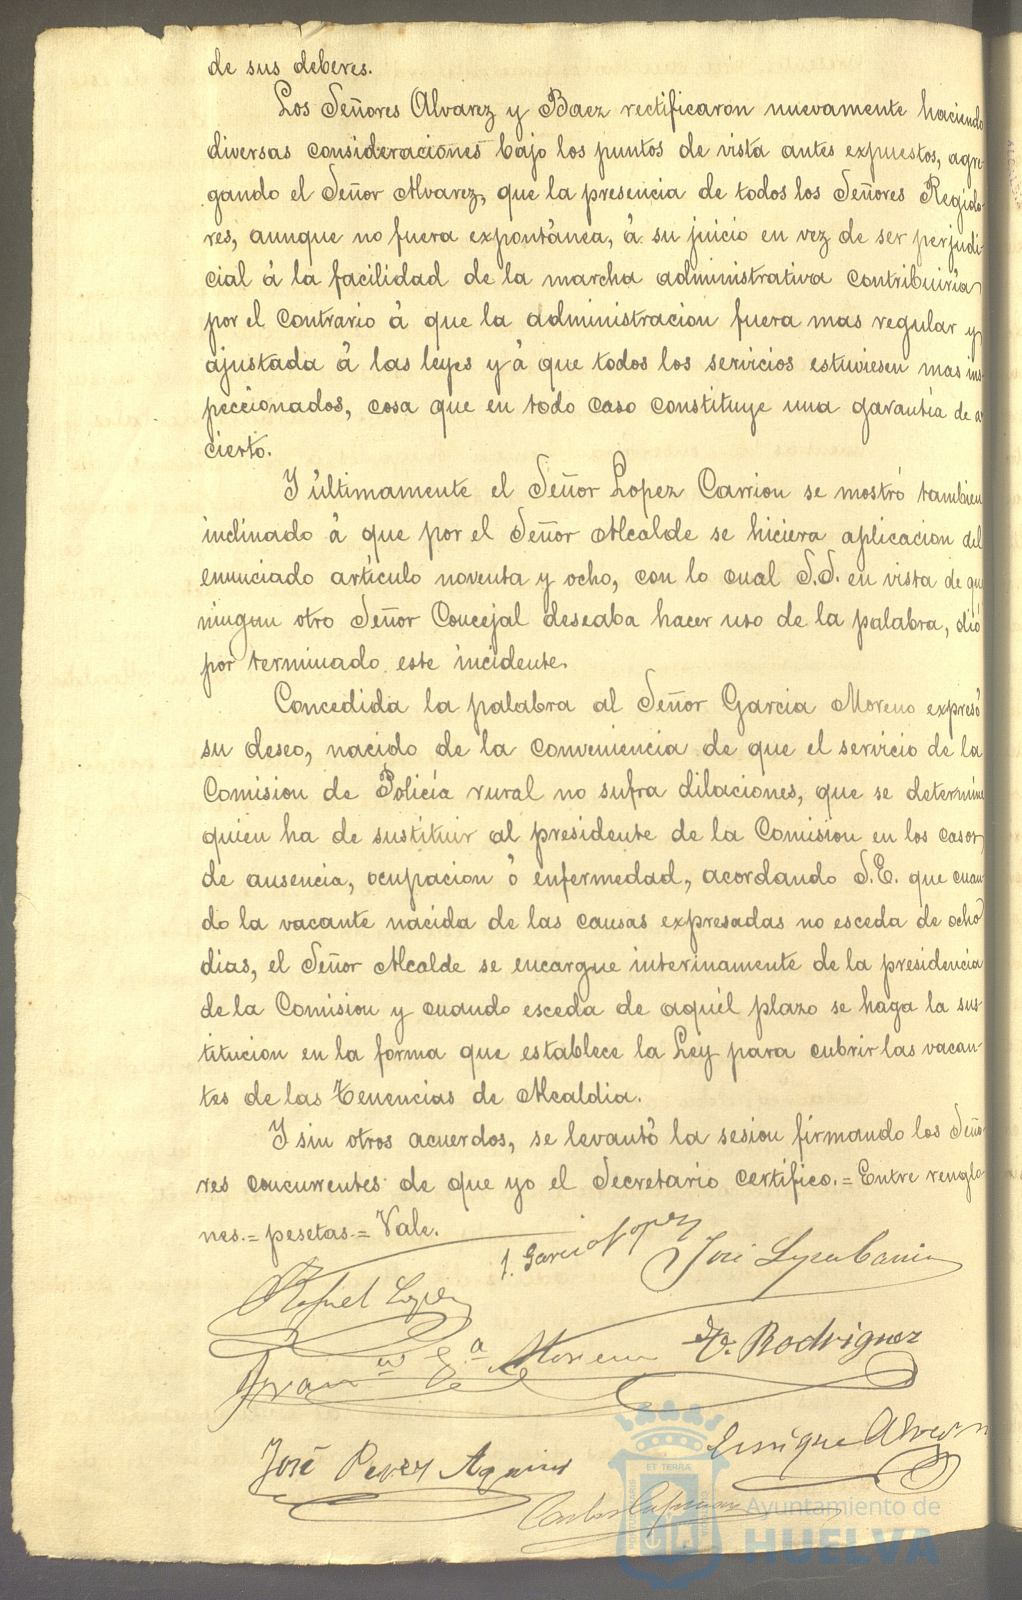 de sus deberes.
Los Señores Alvarez y Baez rectificaron nuevamente haciendo
diversas consideraciones bajo los puntos de vista antes expuestos, agre-
gando el Señor Alvarez, que la presencia de todos los Señores Regido-
res, aunque no fuera expontánea, á su juicio en vez de ser perjudi-
cial á la facilidad de la marcha administrativa contribuiria
por el contrario á que la administracion fuera mas regular y
ajustada á las leyes y á que todos los servicios estuviesen mas ins
peccionados, cosa que en todo caso constituye una garantía de a
cierto.
Y últimamente el Señor Lopez Carrion se mostró tambien
inclinado á que por el Señor Alcalde se hiciera aplicacion del
enunciado artículo noventa y ocho, con lo cual S.S. en vista de que
ningun otro Señor Concejal deseaba hacer uso de la palabra, dió
por terminado este incidente.
Concedida la palabra al Señor Garcia Moreno expresó
su deseo, nacido de la conveniencia de que el servicio de la
Comision de Policía rural no sufra dilaciones, que se determine
quien ha de sustituir al presidente de la Comision en los casos
de ausencia, ocupacion ó enfermedad, acordando S.E. que cuan-
do la vacante nacida de las causas expresadas no esceda de ocho
dias, el Señor Alcalde se encargue interinamente de la presidencia
de la Comision y cuando esceda de aquél plazo se haga la sus-
titucion en la forma que establece la Ley para cubrir las vacan-
tes de las Tenencias de Alcaldia.
Y sin otros acuerdos, se levantó la sesion firmando los Seño-
res concurrentes de que yo el Secretario certifico.=Entre renglo-
nes.=pesetas.=Vale.
J. Garcia Lopez
José Lopez Carrion
Rafael Lopez
Fran.co G.a Moreno
Rodriguez
Enrique Alvarez
José Perez
Carlos
ET TERRÆ
Ayuntamiento de
HUELVA